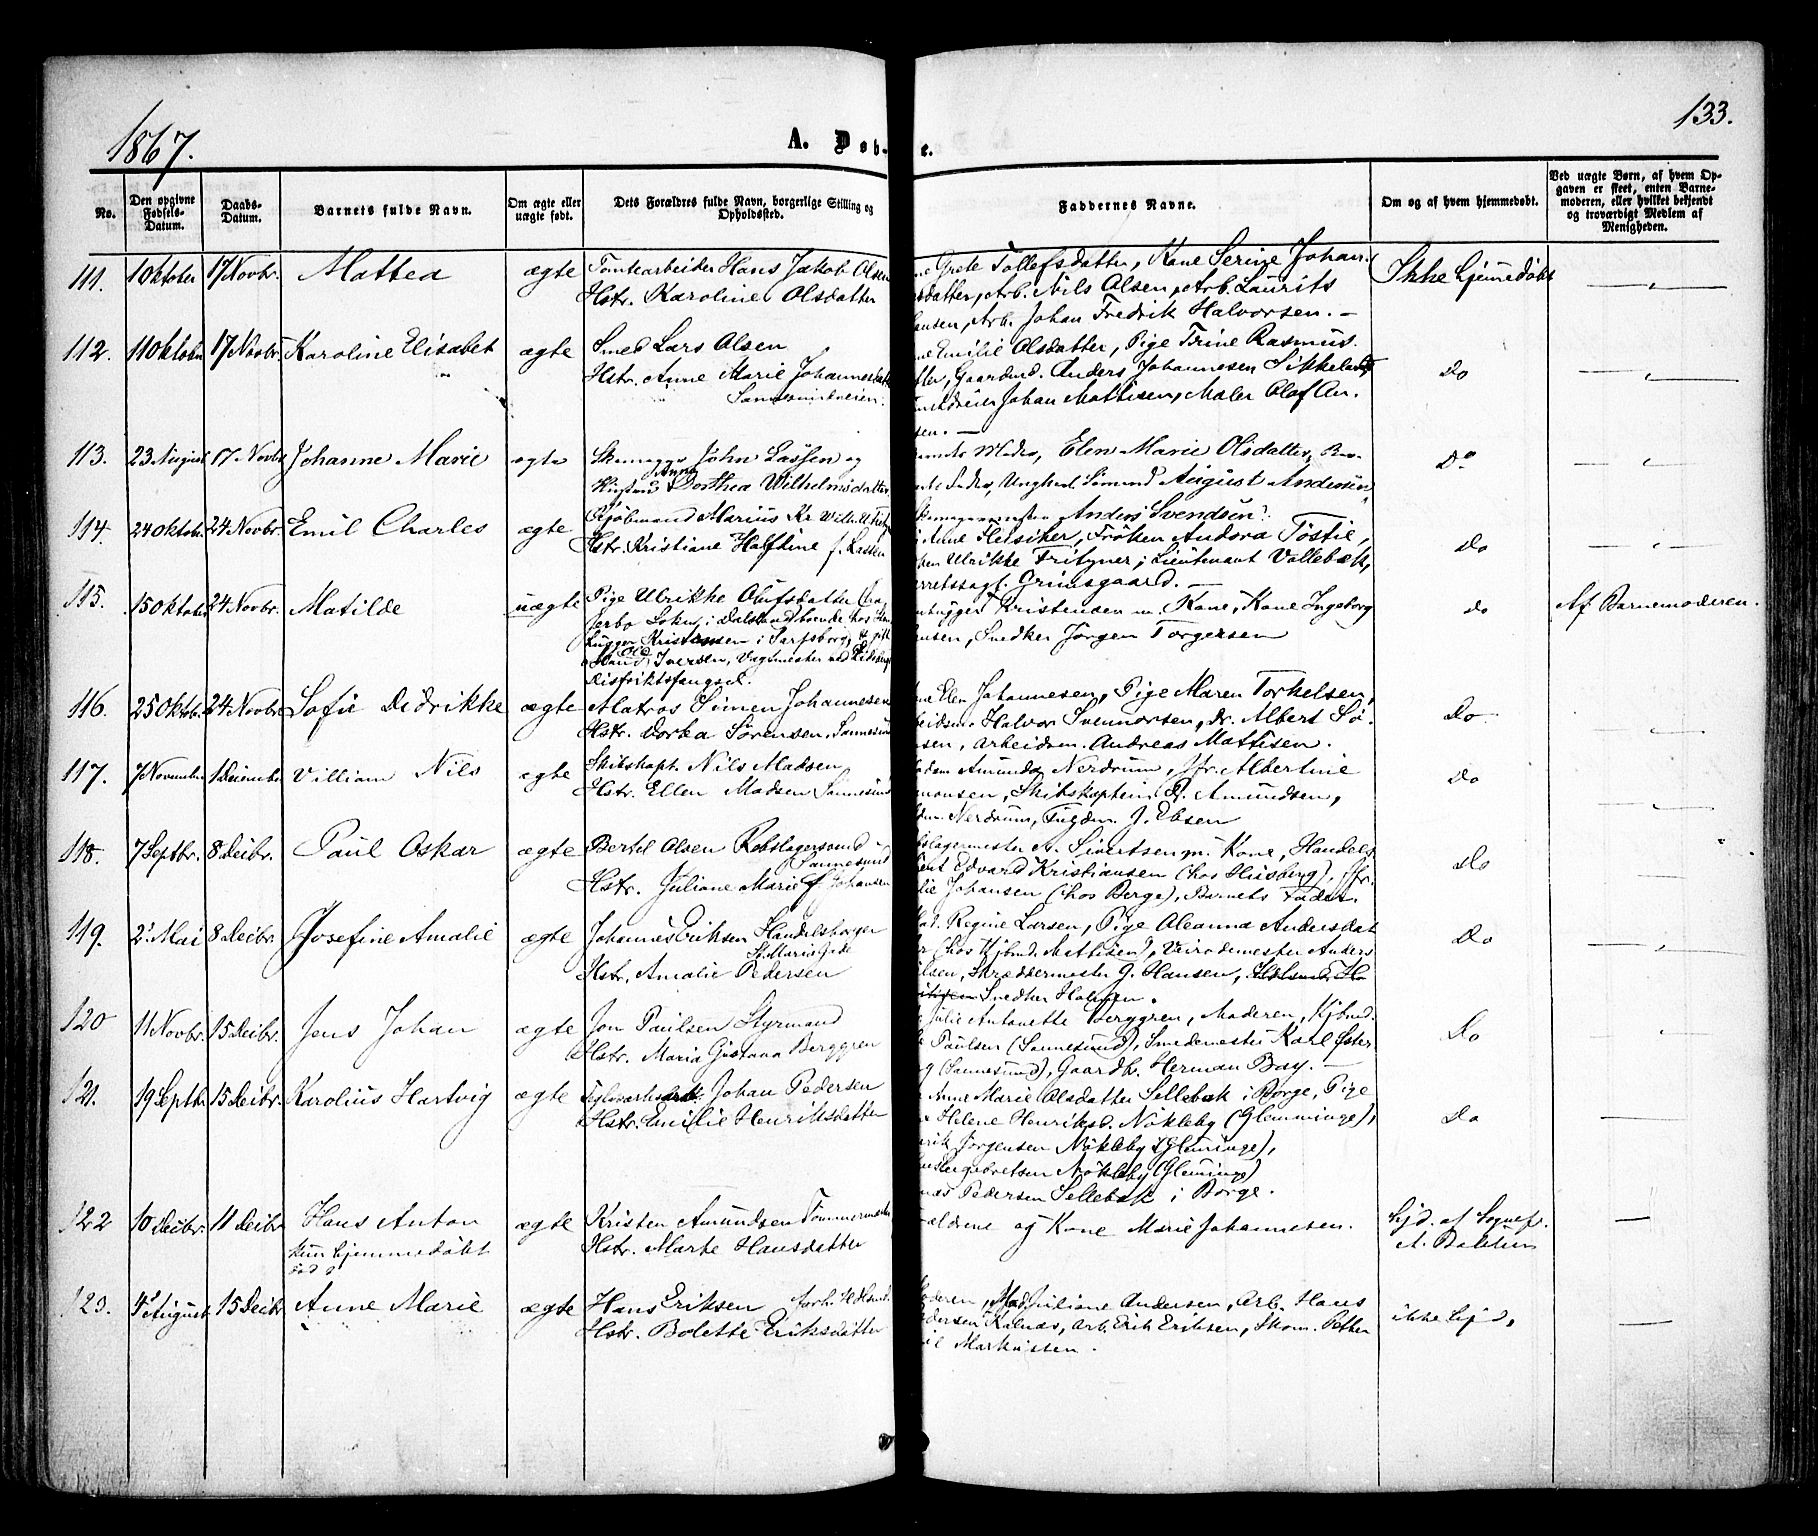 1867.
A. Døb-
e.
133.
No.
Den opgivne Fødsels-Datum.
Daabs-Datum.
Barnets fulde Navn.
Om ægte eller uægte født.
Dets Forældres fulde Navn, borgerlige Stilling og Opholdssted.
Faddernes Navne.
Om og af hvem hjemmedøbt.
Ved uægte Børn, af hvem Opgaven er skeet, enten Barnemoderen, eller hvilket bekjendt og troværdigt Medlem af Menigheden.
111. 1 Oktober 17 Novbr. Mattea ægte Tomtearbeider Hans Jakob Olsen
Hstr. Karoline Olsdatter
ne Grete Tollefsdatter, Kone Serine Johan-
sdatter, Arb. Nils Olsen, Arb. Laurits
ansen, Arb. Johan Fredrik Halvorsen. —
Ikke hjemmedøbt — " —
112. 11 Oktober 17 Novbr. Karoline Elisabet ægte Smed Lars Olsen
Hstr. Anne Marie Johannesdatter
Sannesundsveien.
ne Emilie Olsdatter, Pige Trine Rasmus.
tter, Gaardmd. Anders Johannesen Sikkeland,
Johan Mattisen, Maler Olaf An.
sen. —
Do — " —
113. 23 August 17 Novbr. Johanne Marie ægte Skomager John Lassen og
Hustru Anne Dorthea Wilhelmsdatter
Moder, Elen Marie Olsdatter, Bar-
Fader, Ungkarl Sömand August Andersen
Anders Svendsen.
Do — " —
114. 24 Oktober 24 Novbr. Emil Charles ægte Kjöbmand Marius Kr. Wilh.
Hstr. Kristiane Halfdine f. Lassen
Anne Fleischer, Fröken Andora Töstie,
ken Ulrikke Fritzner, Lieutenant Vollebæk,
rretssagf. Grimsgaard. —
Do — " —
115. 15 Oktober 24 Novbr. Matilde uægte Pige Ulrikke Olufsdatter
Jerbo Sokn i Dalsland boende hos
bygger Kristensen i Sarpsborg,
Iversen, Vagtmester ved
Distriktsfængsel.
bygger Kristensen m. Kone, Kone Ingeborg
ansen, Snedker Jörgen Torgersen
do Af Barnemoderen.
116. 25 Oktbr. 24 Novbr. Sofie Didrikke ægte Matros Simen Johannesen
Hstr. Dorka Sörensen, Sannesund
ne Elen Johannesen, Pige Maren Torkelsen,
beidsm. Halvor Svennorsen, Do. Albert Sö-
nsen, Arbeidsm. Andreas Mattisen.
Do — " —
117. 7 November 1 December Villiam Nils ægte Skibskapt. Nils Madsen
Hstr. Ellen Madsen Sannesund
adam Amunda Nerdrum, Jfr. Albertine
monsen, Skibskaptein D. Amundsen,
dm. Nerdrum, J. Ebsen
Do — " —
118. 7 Septbr. 8 Decbr. Paul Oskar ægte Bertel Olsen Rebslagersvend
(Sannesund)
Hstr. Juliane Marie f. Johansen
slagermester A. Sivertsen m. Kone, Handels
ent Edvard Kristiansen (hos Huisberg), Jfr.
lie Johansen (hos Berge), Barnets Fader.
Do — " —
119. 2 Mai 8 Decbr. Josefine Amalie ægte Johannes Eriksen Handelsborger
St. Mariegade
Hstr. Amalie Pedersen
Mad. Regine Larsen, Pige Oleanna Andersdat
er (hos Kjöbmd. Mattisen), Veirodemester Anders
ilsen, Skræddermester G. Hansen,
Snedker Halvorsen.
Do — " —
120 11 Novbr. 15 Decbr. Jens Johan ægte Jon Paulsen Styrmand
Hstr. Maria Gustava Berggren
Julie Antonette Berggren, Moderen, Kjöbmd.
Paulsen (Sannesund), Smedemester Karl Öster
g (Sannesund), Gaardb. Herman Bay. —
Do
121. 19 Septbr. 15 Decbr. Karolius Hartvig ægte Teglverksarb. Johan Pedersen
Hstr. Emilie Henriksdatter
Anne Marie Olsdatter Sellebæk i Borge, Pige
Helene Henriksd. Nökleby (Glemminge),
rik Jörgensen Nökleby (Glemminge),
Nökleby (Glemminge)
as Pedersen Sellebæk i Borge.
Do —
122 10 Decbr. 11 Decbr Hans Anton
Kun hjemmedöbt
död
ægte Kristen Amundsen Tömmermand
Hstr. Marte Hansdatter
ældrene og Kone Marie Johannesen.
hjd. af Sognepr.
A. —
123. 4 August 15 Decbr Anne Marie ægte Hans Eriksen
Hstr. Bolette Eriksdatter
oderen, Mad. Juliane Andersen, Arb. Hans
edersen Kalnæs, Arb. Erik Eriksen, Skom. Petter
Markussen.
ikke hjd. —